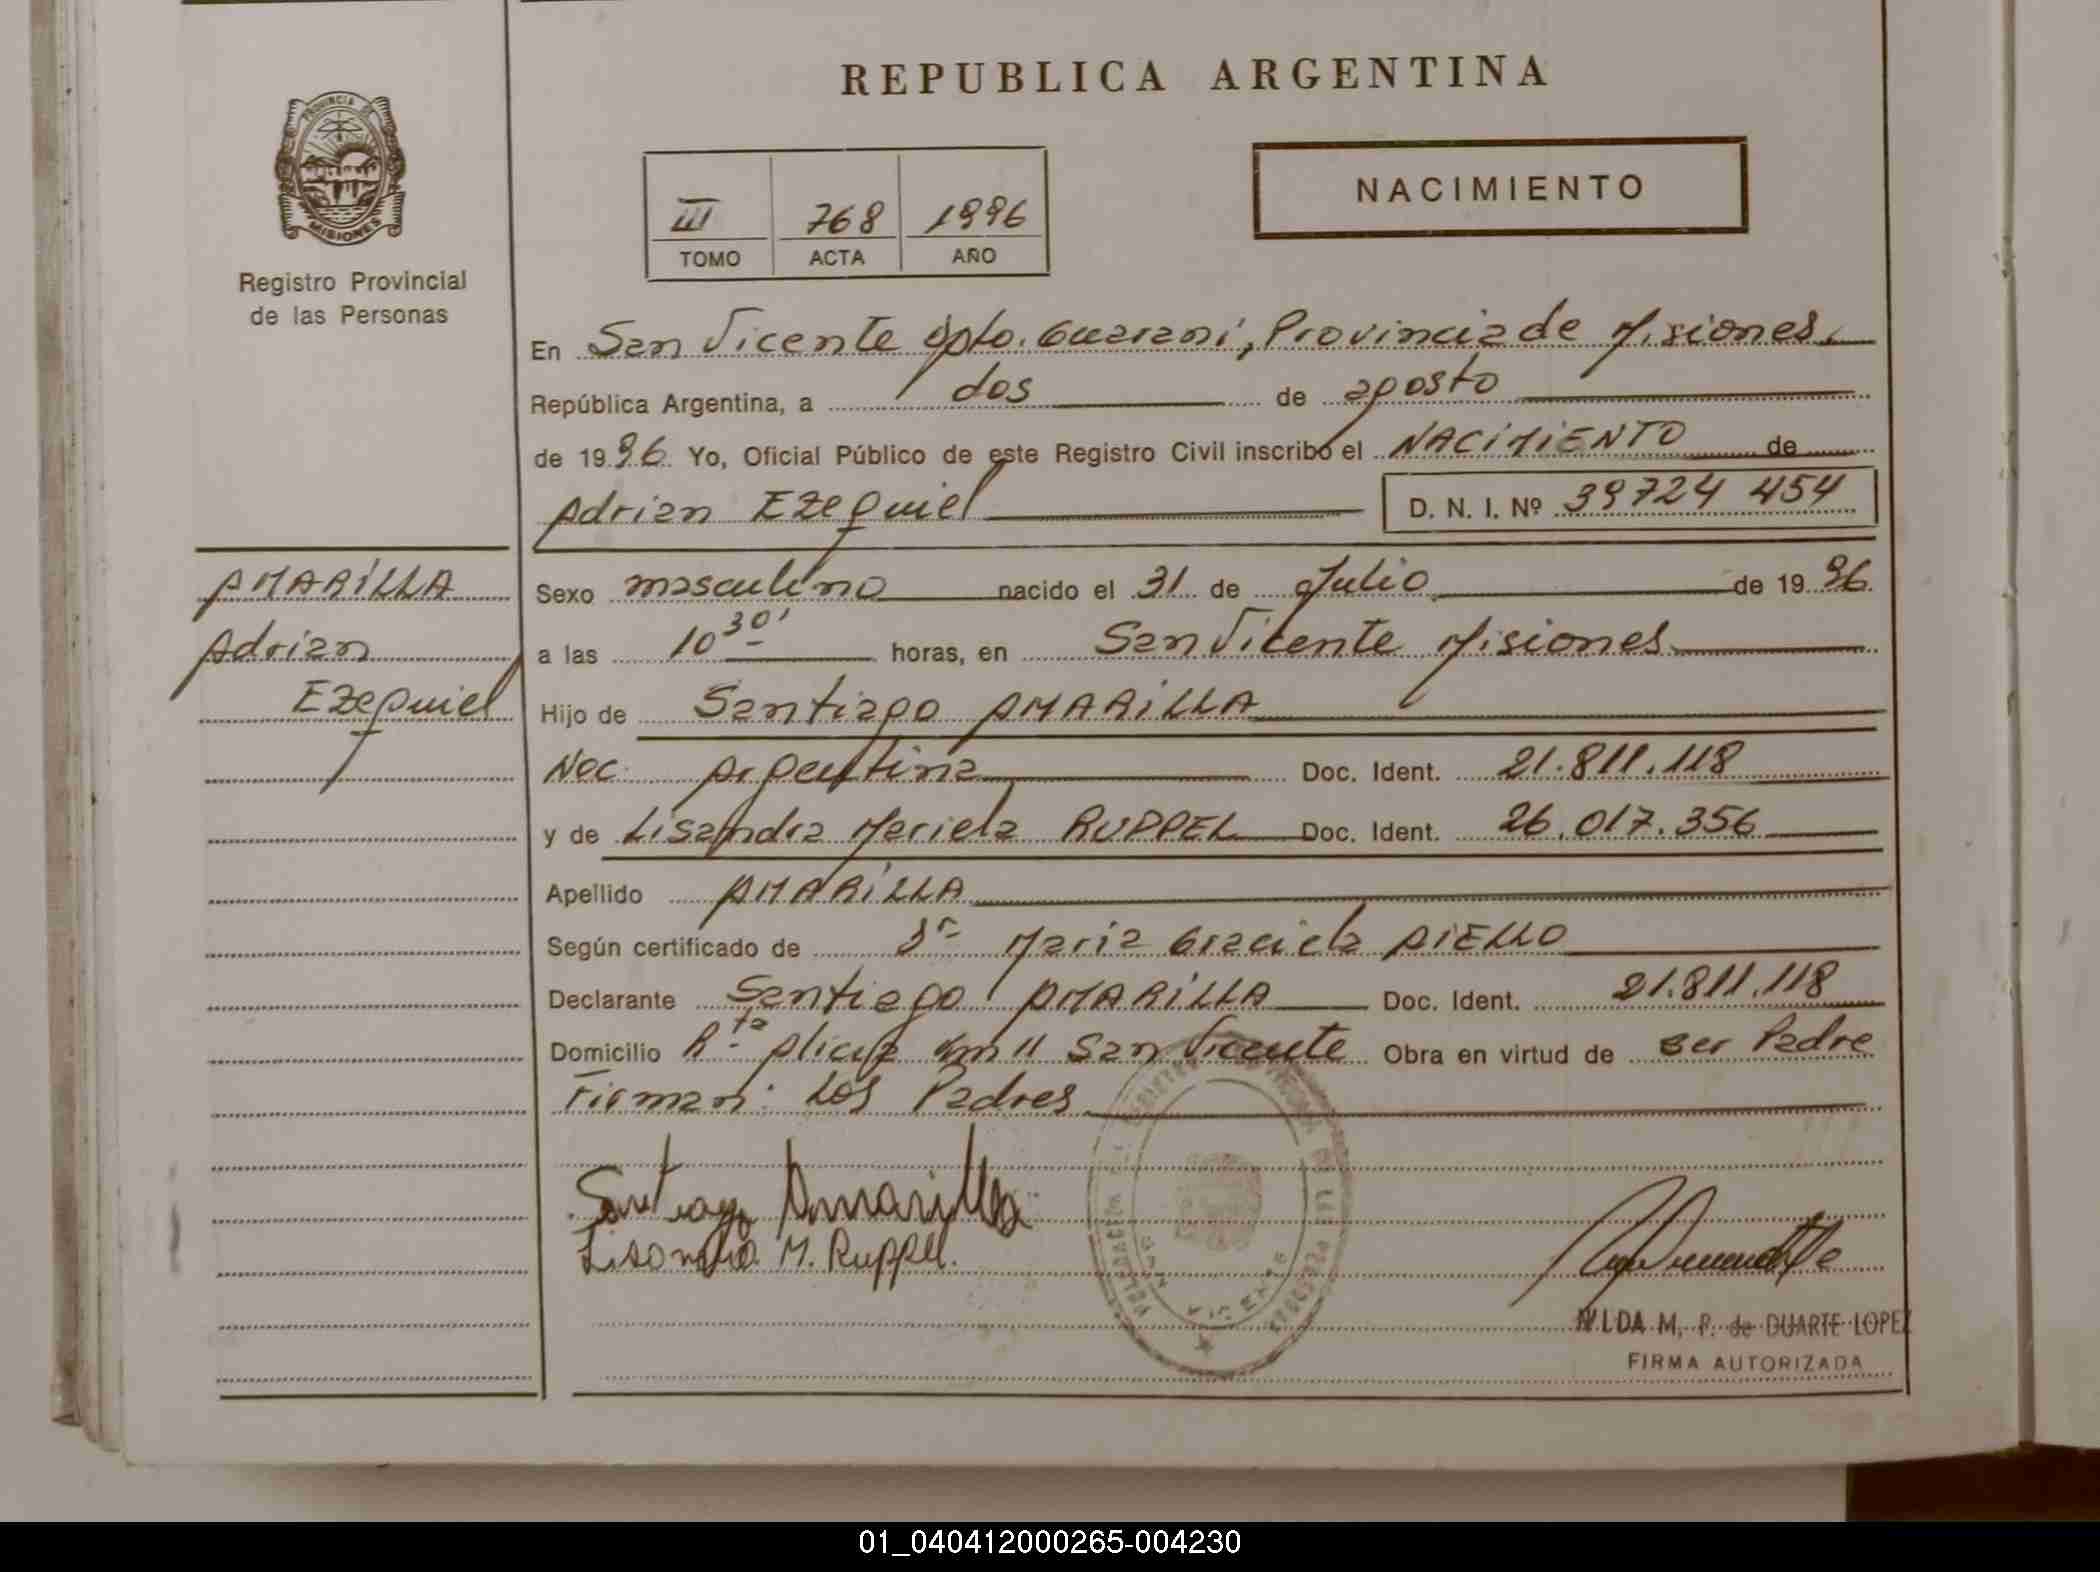 REPUBLICA ARGENTINA
PROVINCIA DE
MISIONES
Registro Provincial
de las Personas
III 768 1996
TOMO ACTA AÑO
NACIMIENTO
En San Vicente Dpto. Guaraní, Provincia de Misiones.
República Argentina, a dos de agosto
de 1996 Yo, Oficial Público de este Registro Civil inscribo el NACIMIENTO de
Adrian Ezequiel D. N. I. Nº 39724 454
AMARILLA
Adrian
Ezequiel
Sexo masculino nacido el 31 de Julio de 1996
a las 10 30' horas, en San Vicente Misiones
Hijo de Santiago AMARILLA
Nac. Argentina Doc. Ident. 21.811.118
y de Lisandra Mariela RUPPEL Doc. Ident. 26.017.356
Apellido AMARILLA
Según certificado de Dra Maria Graciela AIELLO
Declarante Santiago AMARILLA Doc. Ident. 21.811.118
Domicilio Rta Alicia km 11 San Vicente Obra en virtud de ser Padre
Firman: Los Padres
Santiago Amarilla
Lisandra M. Ruppel.
NILDA M. P. de DUARTE LOPEZ
FIRMA AUTORIZADA
01_040412000265-004230